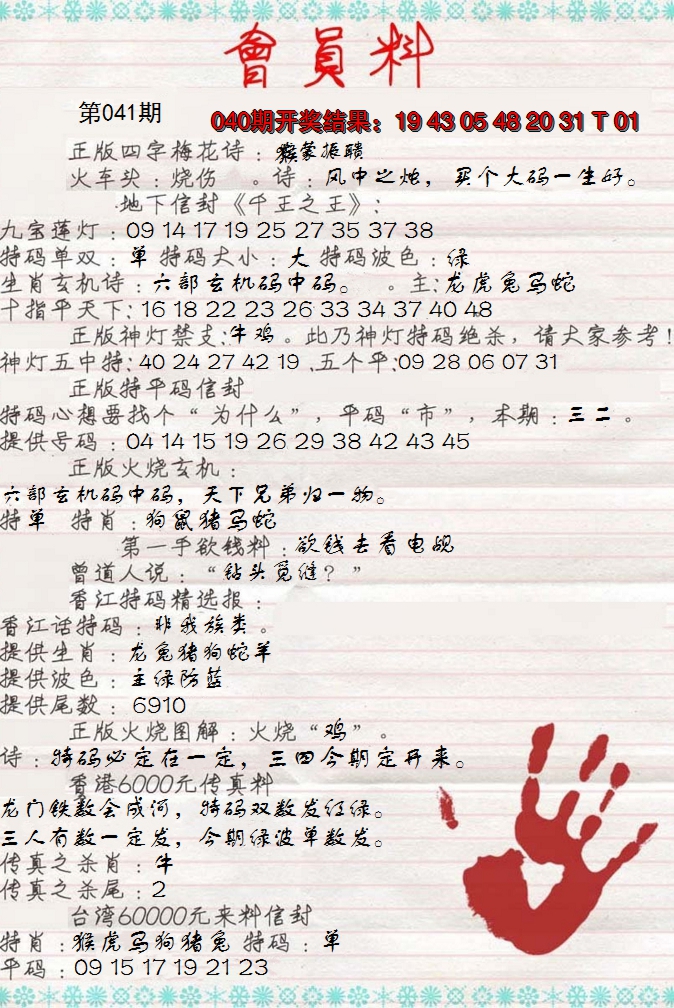 會員料
第041期
040期开奖结果：19 43 05 48 20 31 T 01
正版四字梅花诗：猴蒙振聩
火车头：烧伤 。诗：风中之烛，买个大码一生好。
地下信封《千王之王》：
九宝莲灯：09 14 17 19 25 27 35 37 38
特码单双：单 特码大小：大 特码波色：绿
生肖玄机诗：六部玄机码中码。 。主：龙虎兔马蛇
十指平天下：16 18 22 23 26 33 34 37 40 48
正版神灯禁支：牛鸡。此乃神灯特码绝杀，请大家参考！
神灯五中特：40 24 27 42 19 .五个平：09 28 06 07 31
正版特平码信封
特码心想要找个“为什么”，平码“市”，本期：三二。
提供号码：04 14 15 19 26 29 38 42 43 45
正版火烧玄机：
六部玄机码中码，天下兄弟归一物。
特单 特肖：狗鼠猪马蛇
第一手欲钱料：欲钱去看电视
曾道人说：“钻头觅缝？”
香江特码精选报：
香江话特码：非我族类。
提供生肖：龙兔猪狗蛇羊
提供波色：主绿防蓝
提供尾数：6910
正版火烧图解：火烧“鸡”。
诗：特码必定在一定，三四今期定开来。
香港6000元传真料
龙门铁数会成河，特码双数发红绿。
三人有数一定发，今期绿波单数发。
传真之杀肖：牛
传真之杀尾：2
台湾60000元来料信封
特肖：猴虎马狗猪兔 特码：单
平码：09 15 17 19 21 23